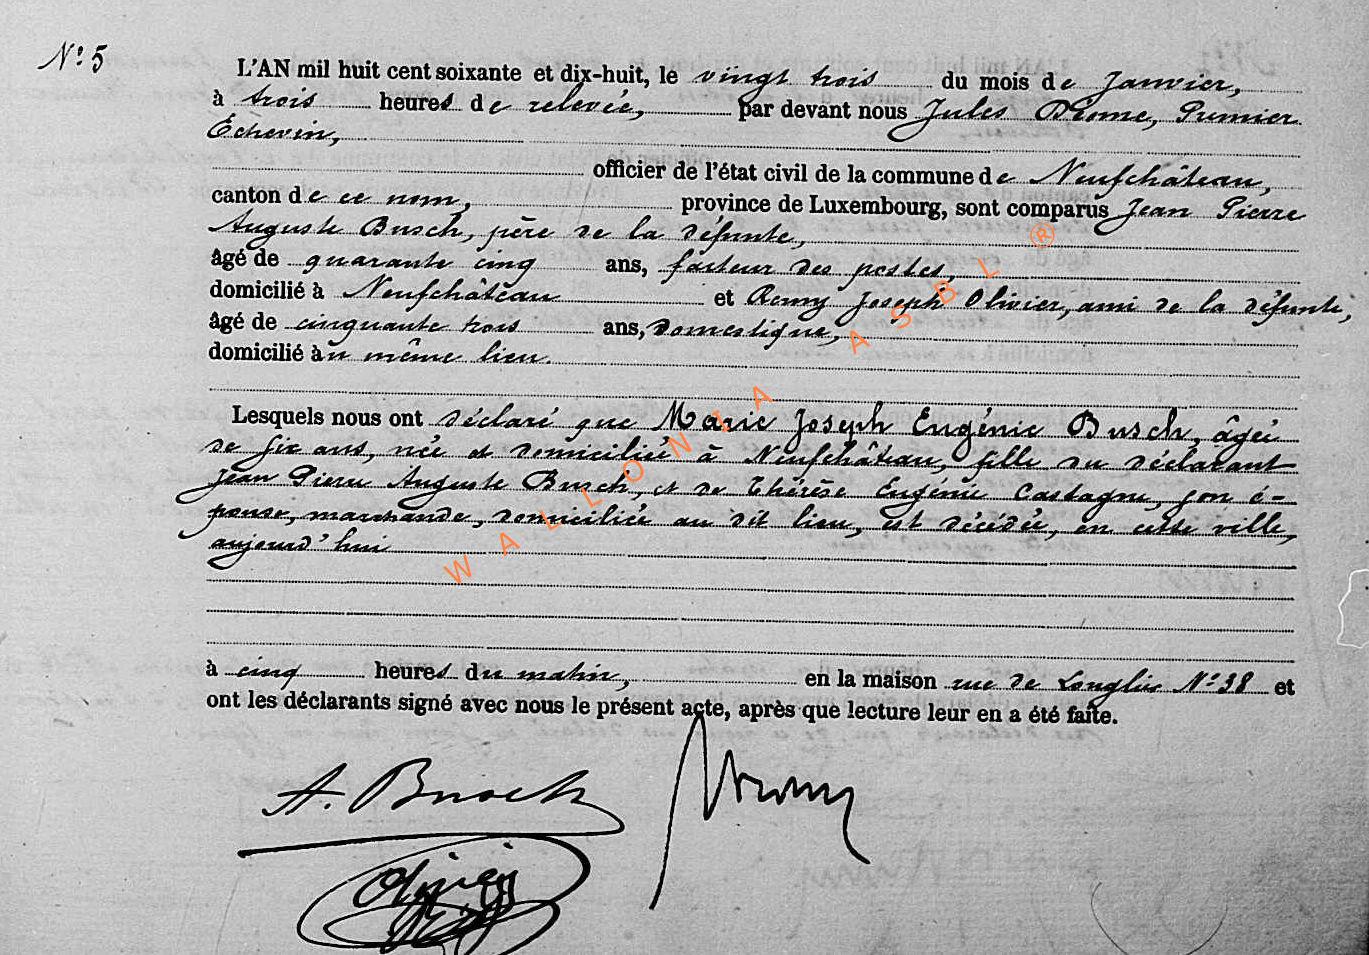 N.º 5
L'AN mil huit cent soixante et dix-huit, le vingt trois du mois de Janvier,
à trois heures de relevée, par devant nous Jules Drome, Premier
Échevin,
officier de l'état civil de la commune de Neufchâteau,
canton de ce nom, province de Luxembourg, sont comparus Jean Pierre
Auguste Busch, père de la défunte,
âgé de quarante cinq ans, facteur des postes,
domicilié à Neufchâteau et Remy Joseph Olivier, ami de la défunte,
âgé de cinquante trois ans, domestique,
domicilié au même lieu.
Lesquels nous ont déclaré que Marie Joseph Eugénie Busch, âgée
de six ans, née et domiciliée à Neufchâteau, fille du déclarant
Jean Pierre Auguste Busch, et de Thérèse Eugénie Castagne, son é-
pouse, marchande, domiciliée au dit lieu, est décédée, en cette ville,
aujourd'hui
à cinq heures du matin, en la maison rue de Longlier N.º 38 et
ont les déclarants signé avec nous le présent acte, après que lecture leur en a été faite.
A. Busch
WALLONIA ASBL ®